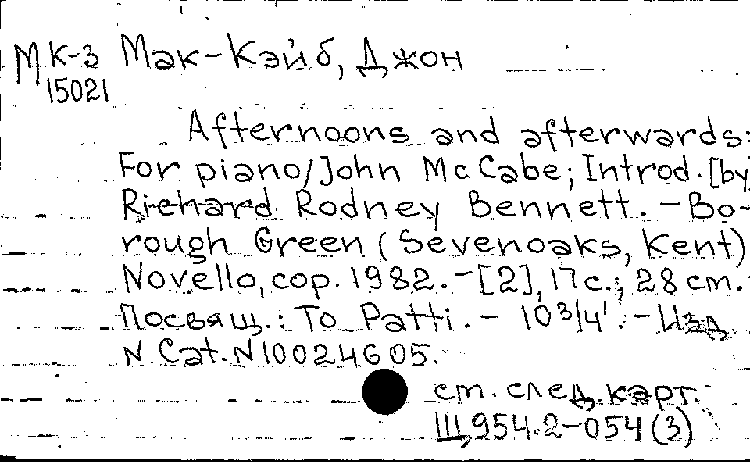 МК-3 Мак-Кэйб, Джон
15021
Afternoons and afterwards:
For piano/John McCabe; Introd. [by
Richard Rodney Bennett. - Bo-
rough Green (Sevenoaks, Kent)
Novello, cop. 1982. - [2], 17 с.; 28 cm.
Посвящ.: To Patti. - 10 3/4'. - Изд
N Cat. N 10024605.
см. след. карт.
Щ954.2-054(3)